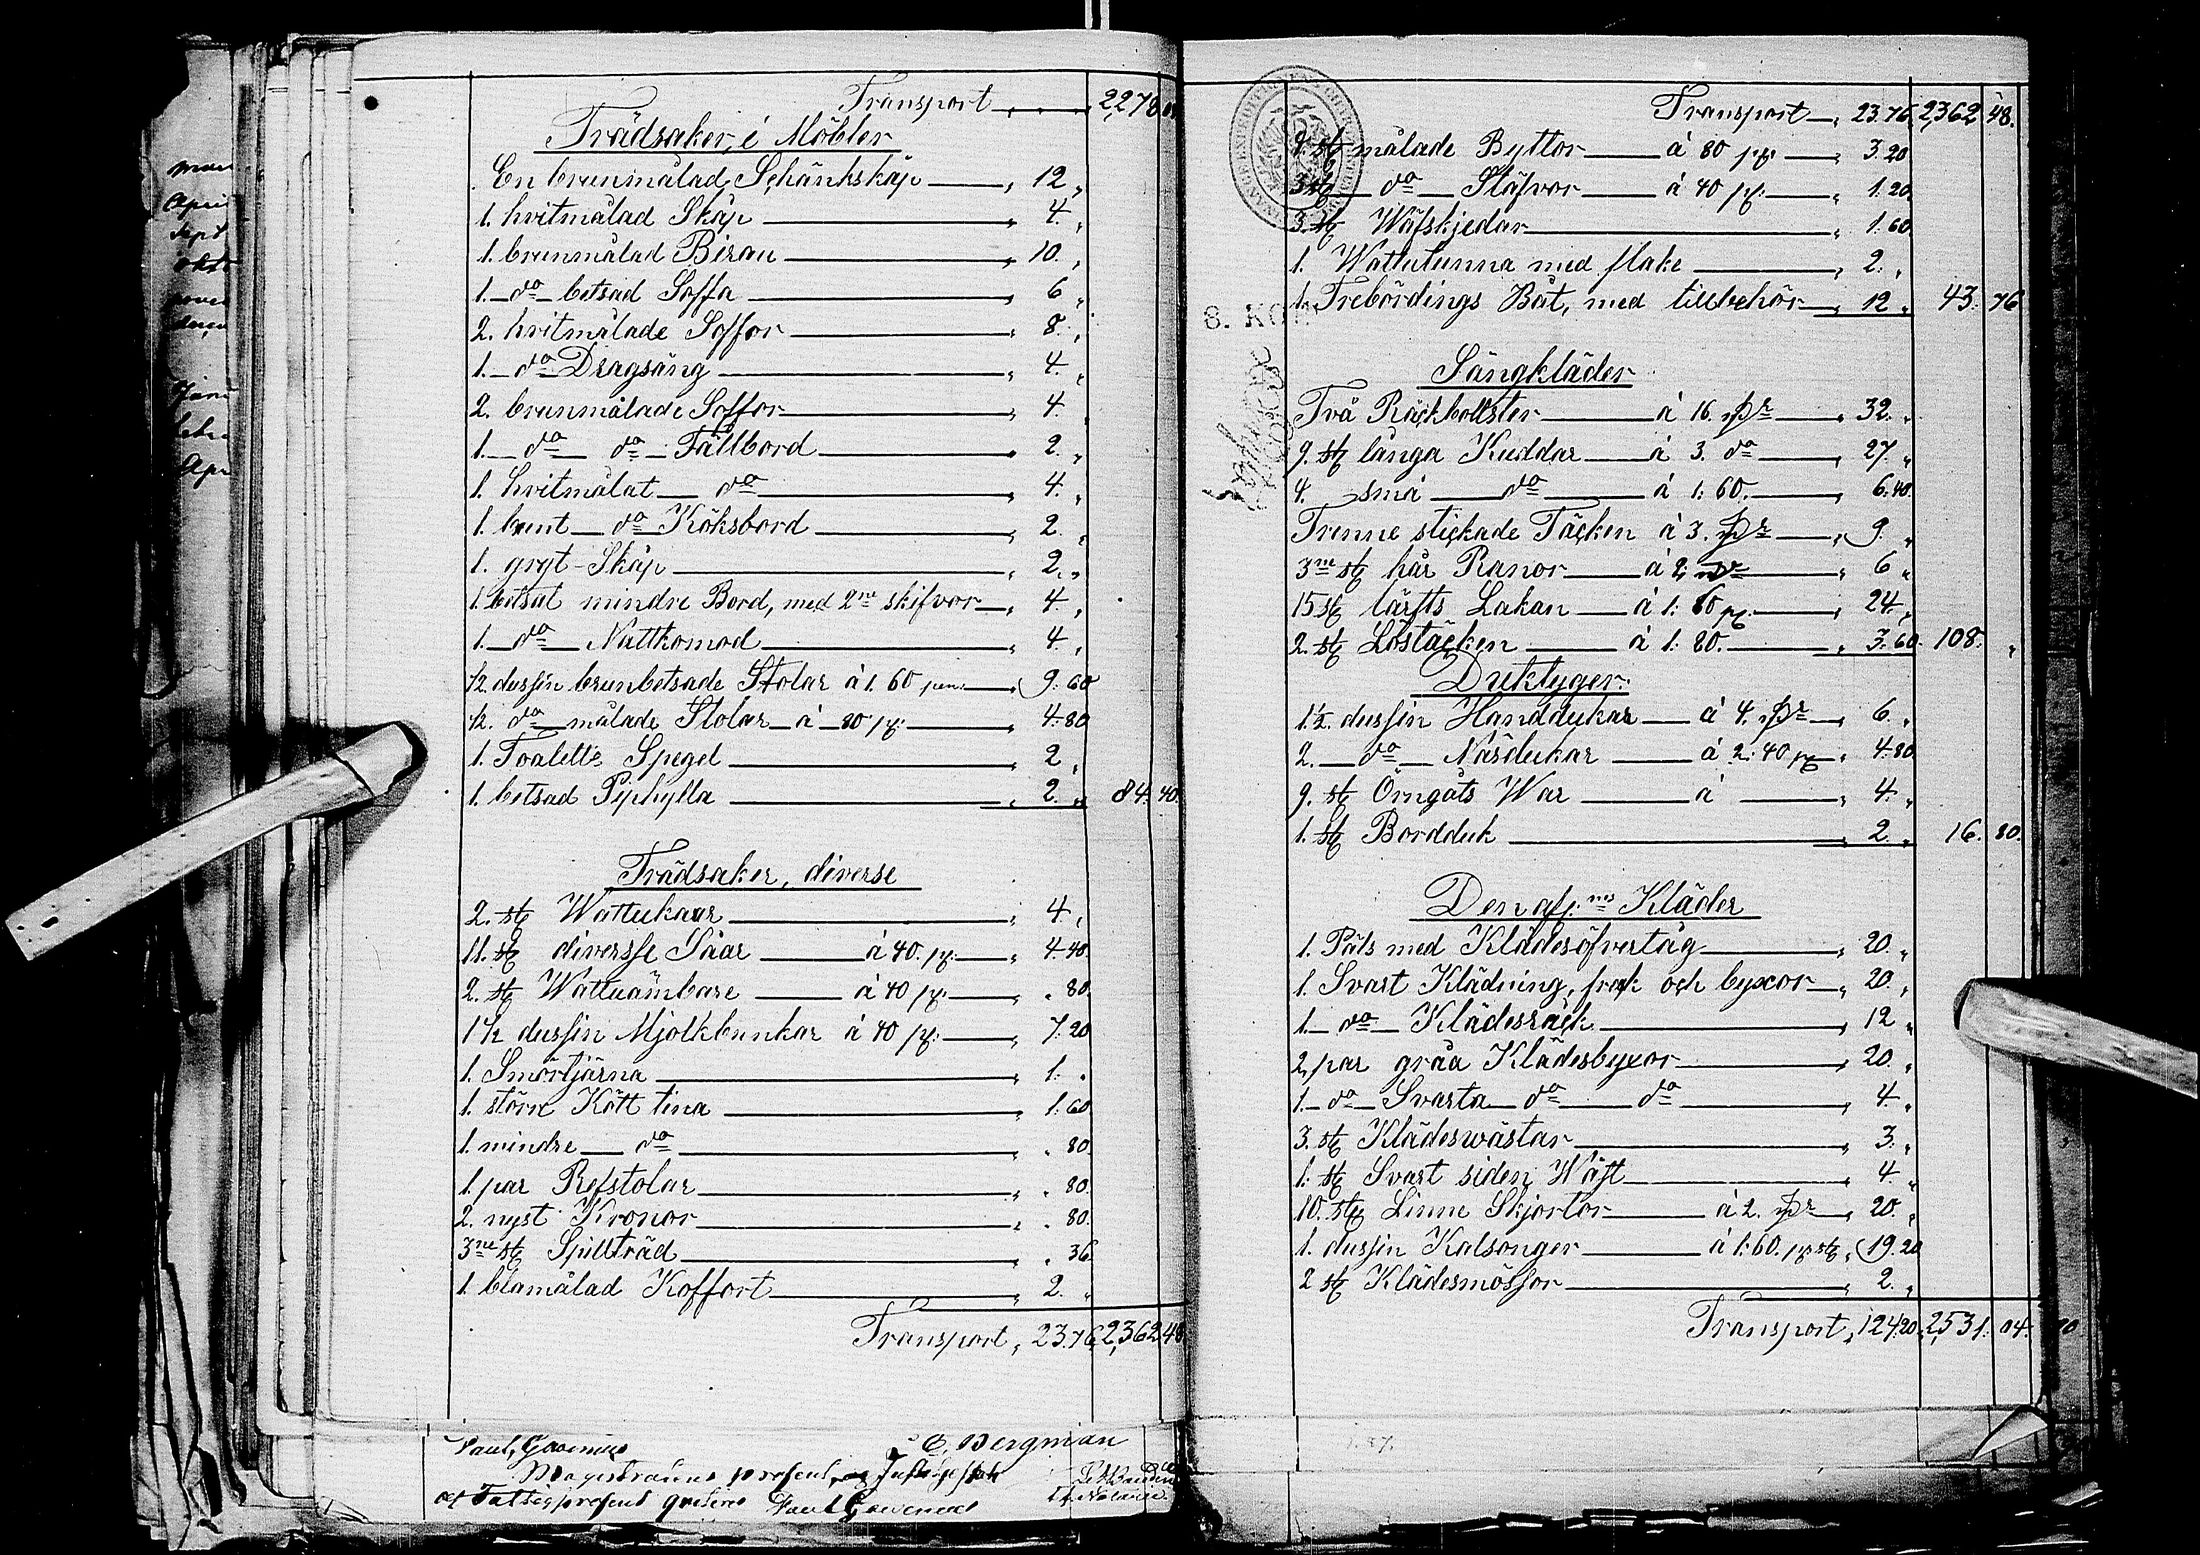 Transport 2,278 08
Trädsaker, i Möbler
En brunmålad Schänkskåp 12 „
1. hvitmålad Skåp 4. „
1. brunmålad Birau 10. „
1. do betsad Soffa 6 „
2. hvitmålade Soffor 8 „
1. do Dragsäng 4. „
2. brunmålade Soffor 4. „
1. do do Fällbord 2. „
1. hvitmålat do 4. „
1. brunt do Köksbord 2. „
1. gryt-Skåp 2. „
1. betsat mindre Bord, med 2ne skifvor 4. „
1. do Nattkomod 4. „
½ dussin brunbetsade Stolar á 1. 60 pen: 9. 60
½ do målade Stolar á 80 pf: 4. 80
1. Toalette Spegel 2 „
1. betsad Piphylla 2. „ 84. 40.
Trädsaker, diverse
2. st Wattukaar 4. „
11. st diversse Såar á 40. pf: 4. 40
2. st Wattuämbare á 40 pf: „ 80.
1½ dussin Mjölkbunkar á 40 pf: 7. 20
1. Smörtjärna 1. „
1. större Kött tina 1. 60
1. mindre do „ 80.
1. par Refstolar „ 80.
2. nyst Kronor „ 80.
3ne st Spillträd „ 36
1. blamålad Koffort 2. „
Transport, 23.76 2,362 48
C. Bergman
Magistratens
Transport 23.76 2,362 48.
4. st målade Byttor á 80 pf: 3. 20
3 st do Stäfvor á 40 pf: 1. 20
3. st Wäfskjedar 1. 60
1. Wattutunna med flake 2. „
1. Trebördings Båt, med tillbehör 12 „ 43. 76
8. KO
Sängkläder
Två Räckbollster á 16. mr 32. „
9. st långa Kuddar á 3. do 27. „
4. små do á 1. 60. 6. 40
Trenne stickade Täcken á 3. mr 9. „
3ne st hår Ranor á 2. mr 6 „
15 st lärfts Lakan á 1. 60 pf: 24. „
2. st Löstäcken á 1. 80. 3. 60. 108. „
Duktyger
1½ dussin Handdukar á 4. mr 6. „
2. do Näsdukar á 2. 40 pf 4. 80
9. st Örngåts War á 4. „
1. st Bordduk 2. „ 16. 80.
Den afl:nes Kläder
1. Päls med Klädesöfvertåg 20. „
1. Svart Klädning, frak och byxor 20. „
1. do Klädesråck 12 „
2. par gråa Klädesbyxor 20. „
1. do Svarta do do 4. „
3. st Klädeswästar 3. „
1. st Svart siden Wäst 4. „
10. st Linne Skjortor á 2. mr 20. „
1. dussin Kalsonger á 1. 60. pf st 19. 20
2 st Klädesmössor 2. „
Transport, 124.20 2,531. 04.